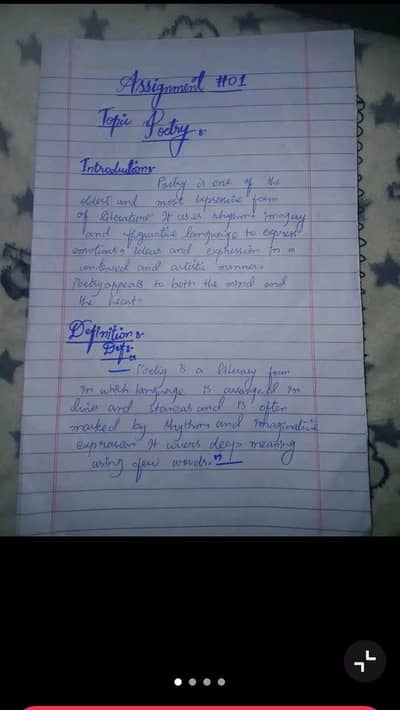 Assignment #01
Topic Poetry :-
Introduction:-
Poetry is one of the
oldest and most expressive form
of literature. It uses rhythm imagery
and figurative language to express
emotions, ideas and expression in a
condensed and artistic manner.
Poetry appeals to both the mind and
the heart.
Definition :-
Def :-
Poetry is a literary form
in which language is arranged in
lines and stanzas and is often
marked by rhythm and imaginative
expression It covers deep meaning
using few words."